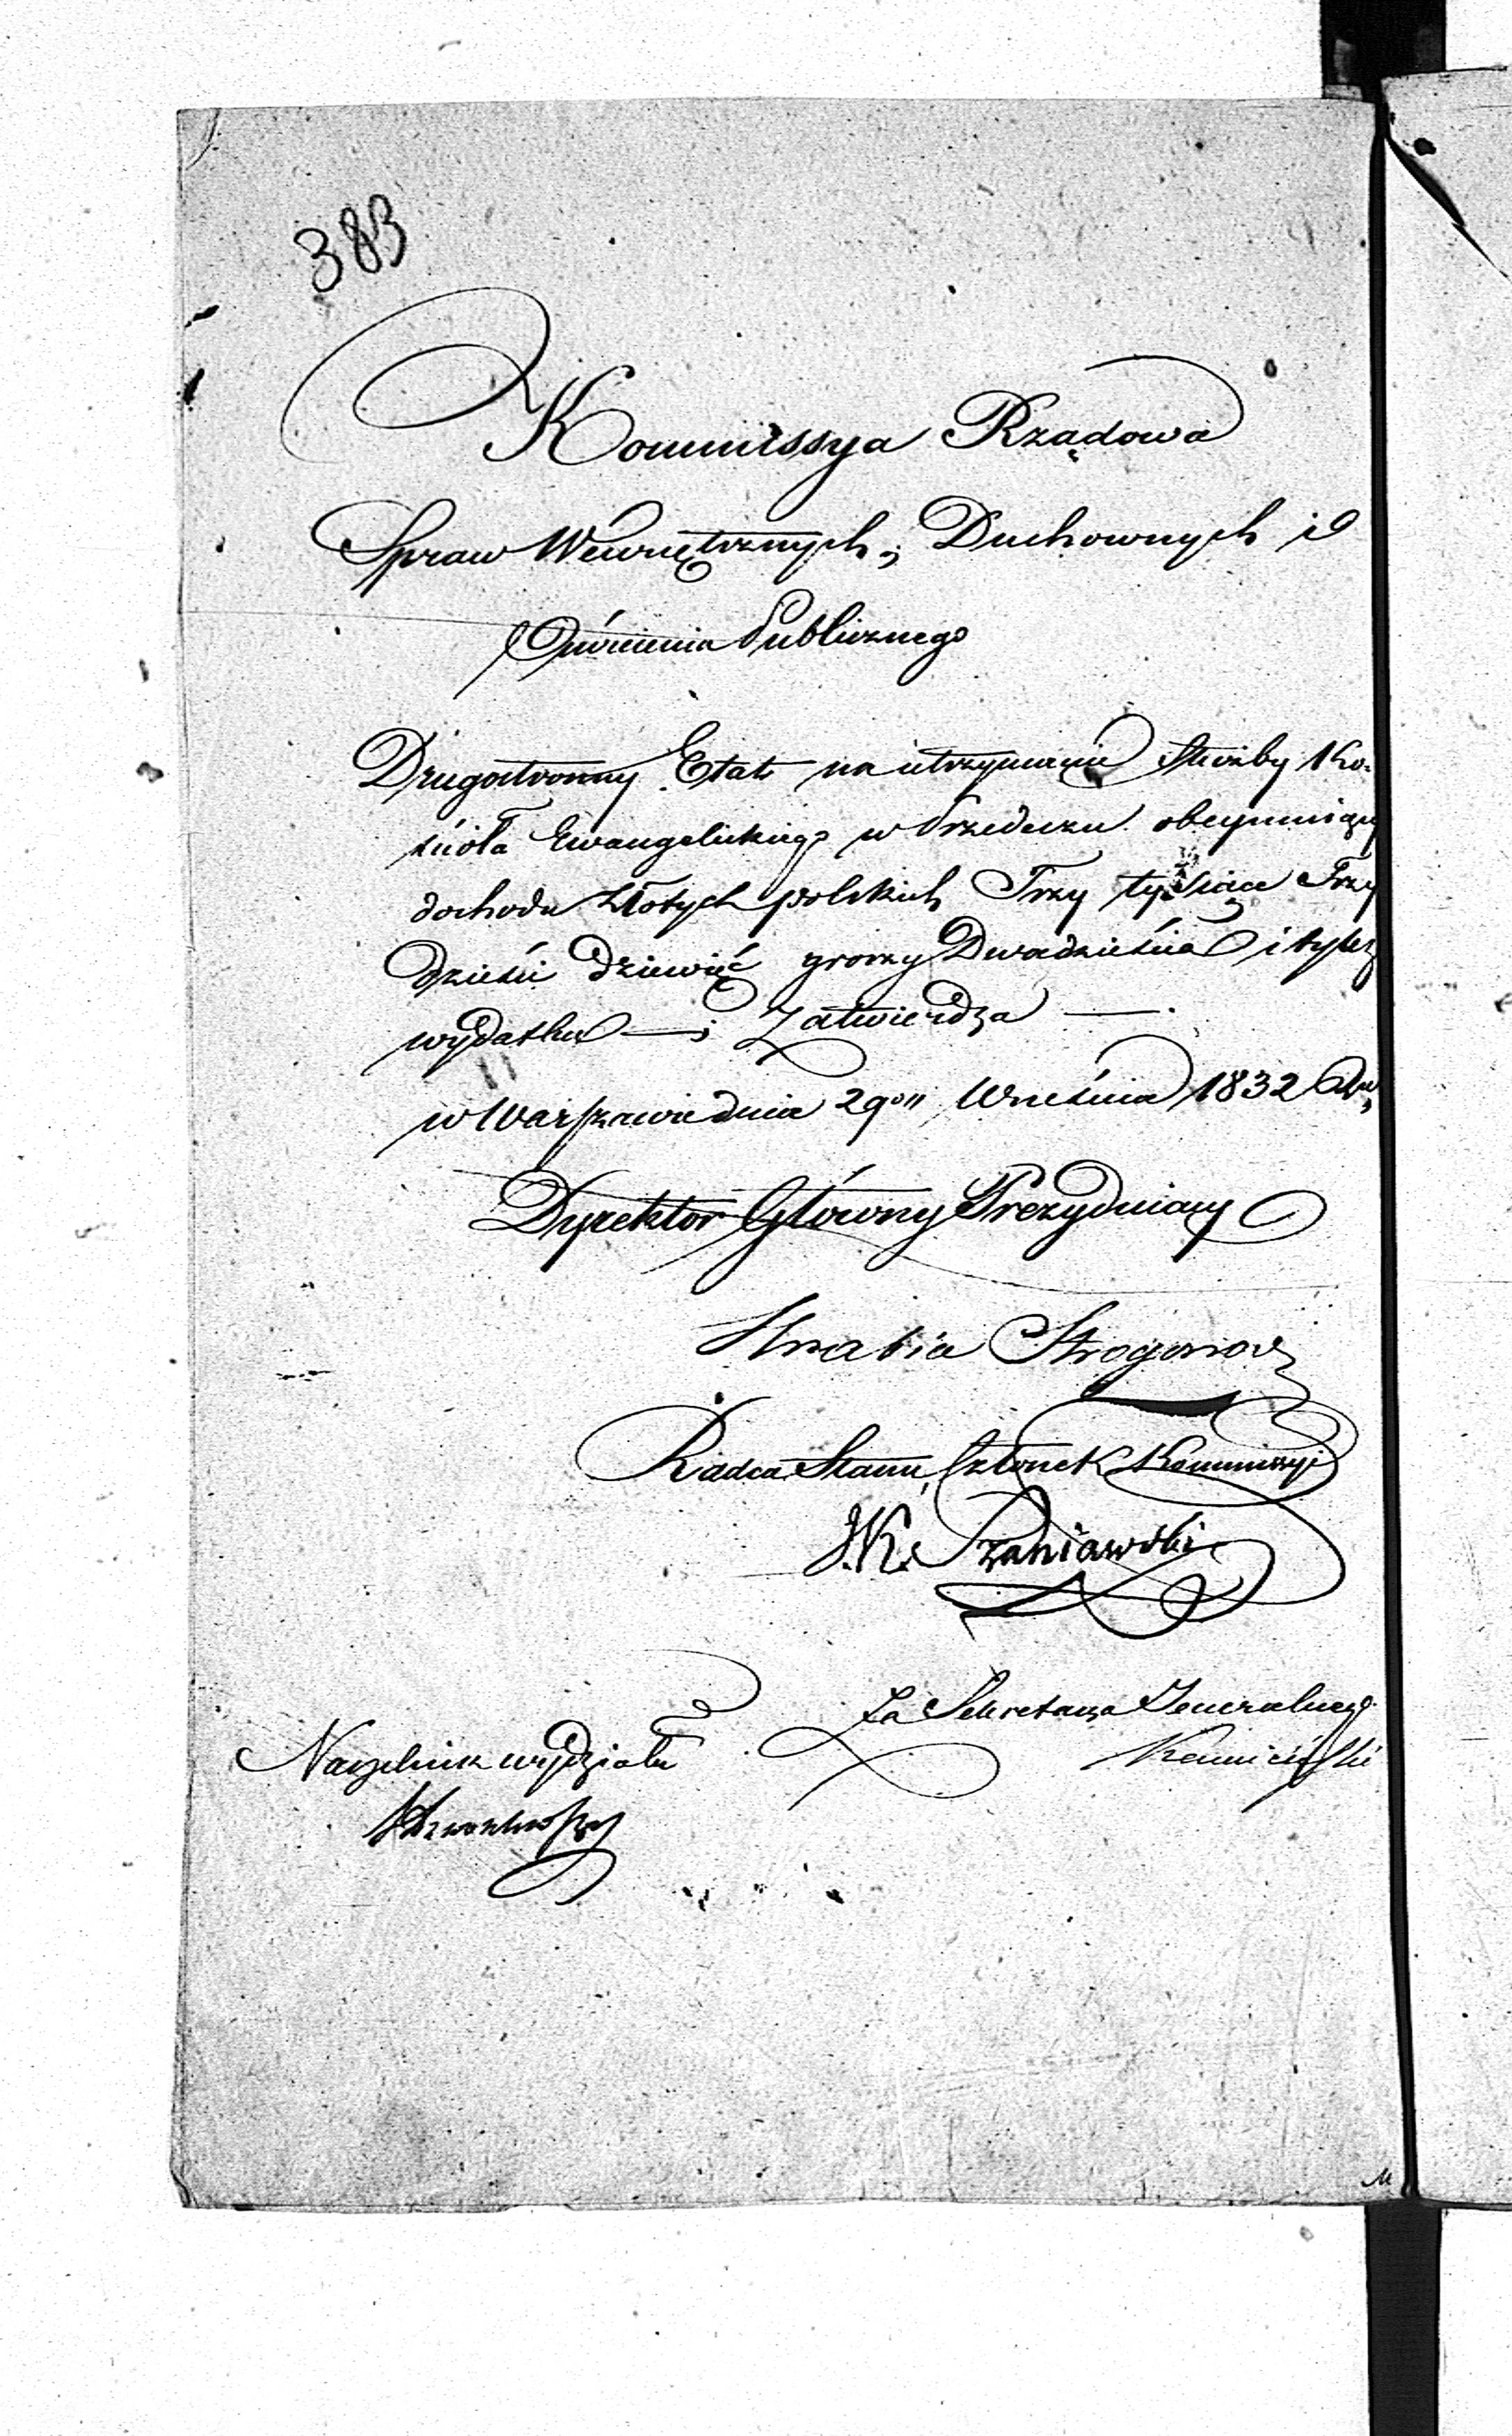 383
Kommissya Rządowa
Spraw Wewnętrznych, Duchownych i
Oświecenia Publicznego
Drugostronny Etat na utrzymanie Służby Ko-
ścioła Ewangelickiego w Przedeczu obeymuiący
dochodu złotych polskich Trzy tysiące Trzy
dzieści dziewięć groszy Dwadzieścia i tyleż
wydatku — Zatwierdza —.
w Warszawie dnia 29go Września 1832 Rku
Dyrektor Główny Prezyduiący
Hrabia Strogonow
Radca Stanu, Członek Kommissyi
J.K. Szaniawski
Za Sekretarza Generalnego
Naczelnik wydziału